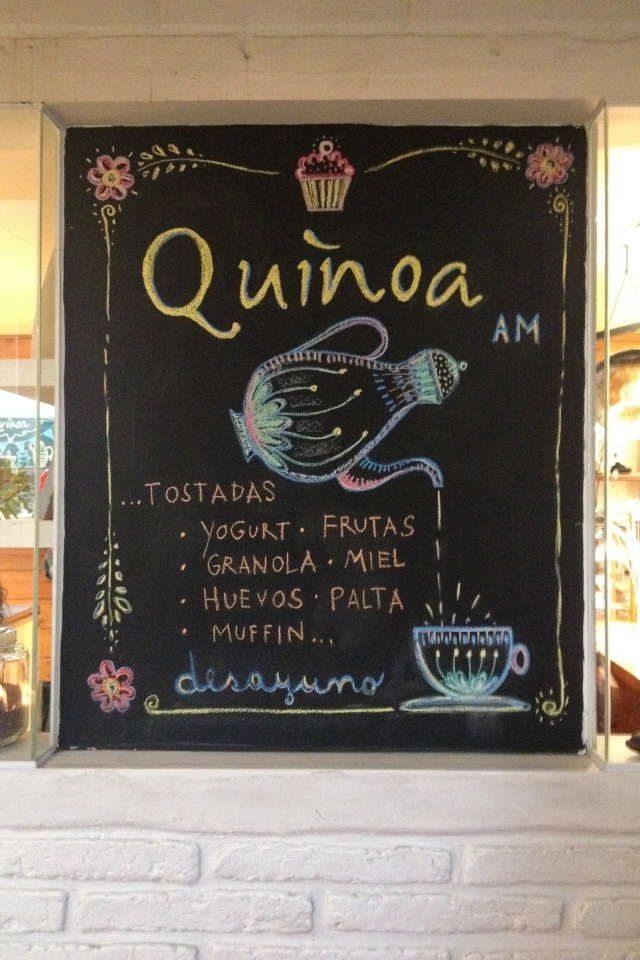 Quinoa
AM
...TOSTADAS
· YOGURT · FRUTAS
· GRANOLA · MIEL
· HUEVOS · PALTA
· MUFFIN...
desayuno